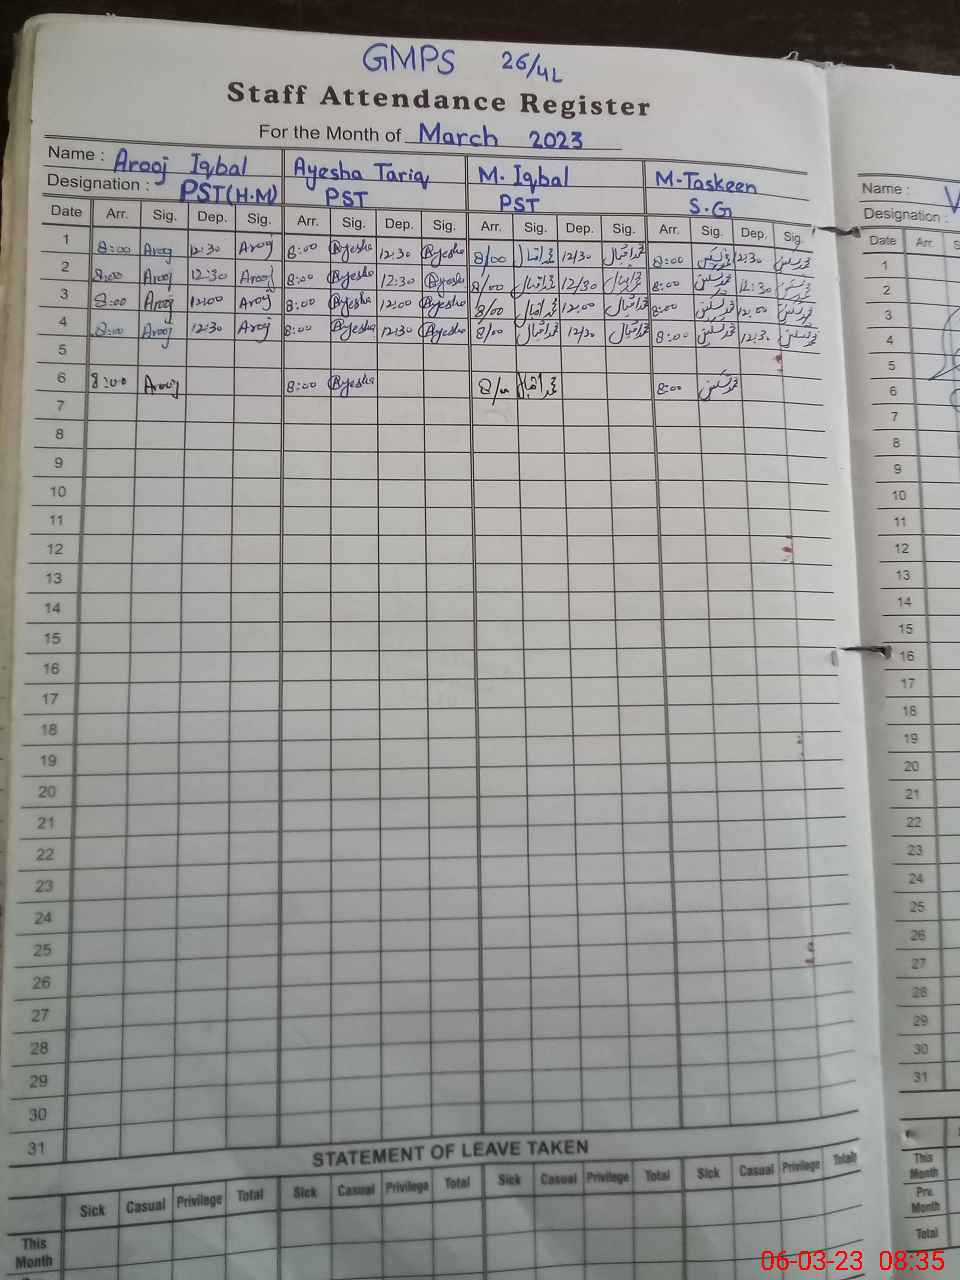 GMPS 26/4L
Staff Attendance Register
For the Month of March 2023
Name : Arooj Iqbal Ayesha Tariq M. Iqbal M-Taskeen
Designation : PST(H.M) PST PST S.G
Date Arr. Sig. Dep. Sig. Arr. Sig. Dep. Sig. Arr. Sig. Dep. Sig. Arr. Sig. Dep. Sig.
1 8:00 Arooj 12:30 Arooj 8:00 Ayesha 12:30 Ayesha 8/00 محمد اقبال 12/30 محمد اقبال 8:00 محمد تسکین 12:30 محمد تسکین
2 8:00 Arooj 12:30 Arooj 8:00 Ayesha 12:30 Ayesha 8/00 محمد اقبال 12/30 محمد اقبال 8:00 محمد تسکین 12:30 محمد تسکین
3 8:00 Arooj 12:00 Arooj 8:00 Ayesha 12:00 Ayesha 8/00 محمد اقبال 12:00 محمد اقبال 8:00 محمد تسکین 12:00 محمد تسکین
4 8:00 Arooj 12:30 Arooj 8:00 Ayesha 12:30 Ayesha 8/00 محمد اقبال 12/30 محمد اقبال 8:00 محمد تسکین 12:30 محمد تسکین
5
6 8:00 Arooj 8:00 Ayesha 8/00 محمد اقبال 8:00 محمد تسکین
7
8
9
10
11
12
13
14
15
16
17
18
19
20
21
22
23
24
25
26
27
28
29
30
31
STATEMENT OF LEAVE TAKEN
Sick Casual Privilege Total Sick Casual Privilege Total Sick Casual Privilege Total Sick Casual Privilege Total
This
Month
Name :
Designation :
Date Arr.
1
2
3
4
5
6
7
8
9
10
11
12
13
14
15
16
17
18
19
20
21
22
23
24
25
26
27
28
29
30
31
This
Month
Prv.
Month
Total
06-03-23 08:35